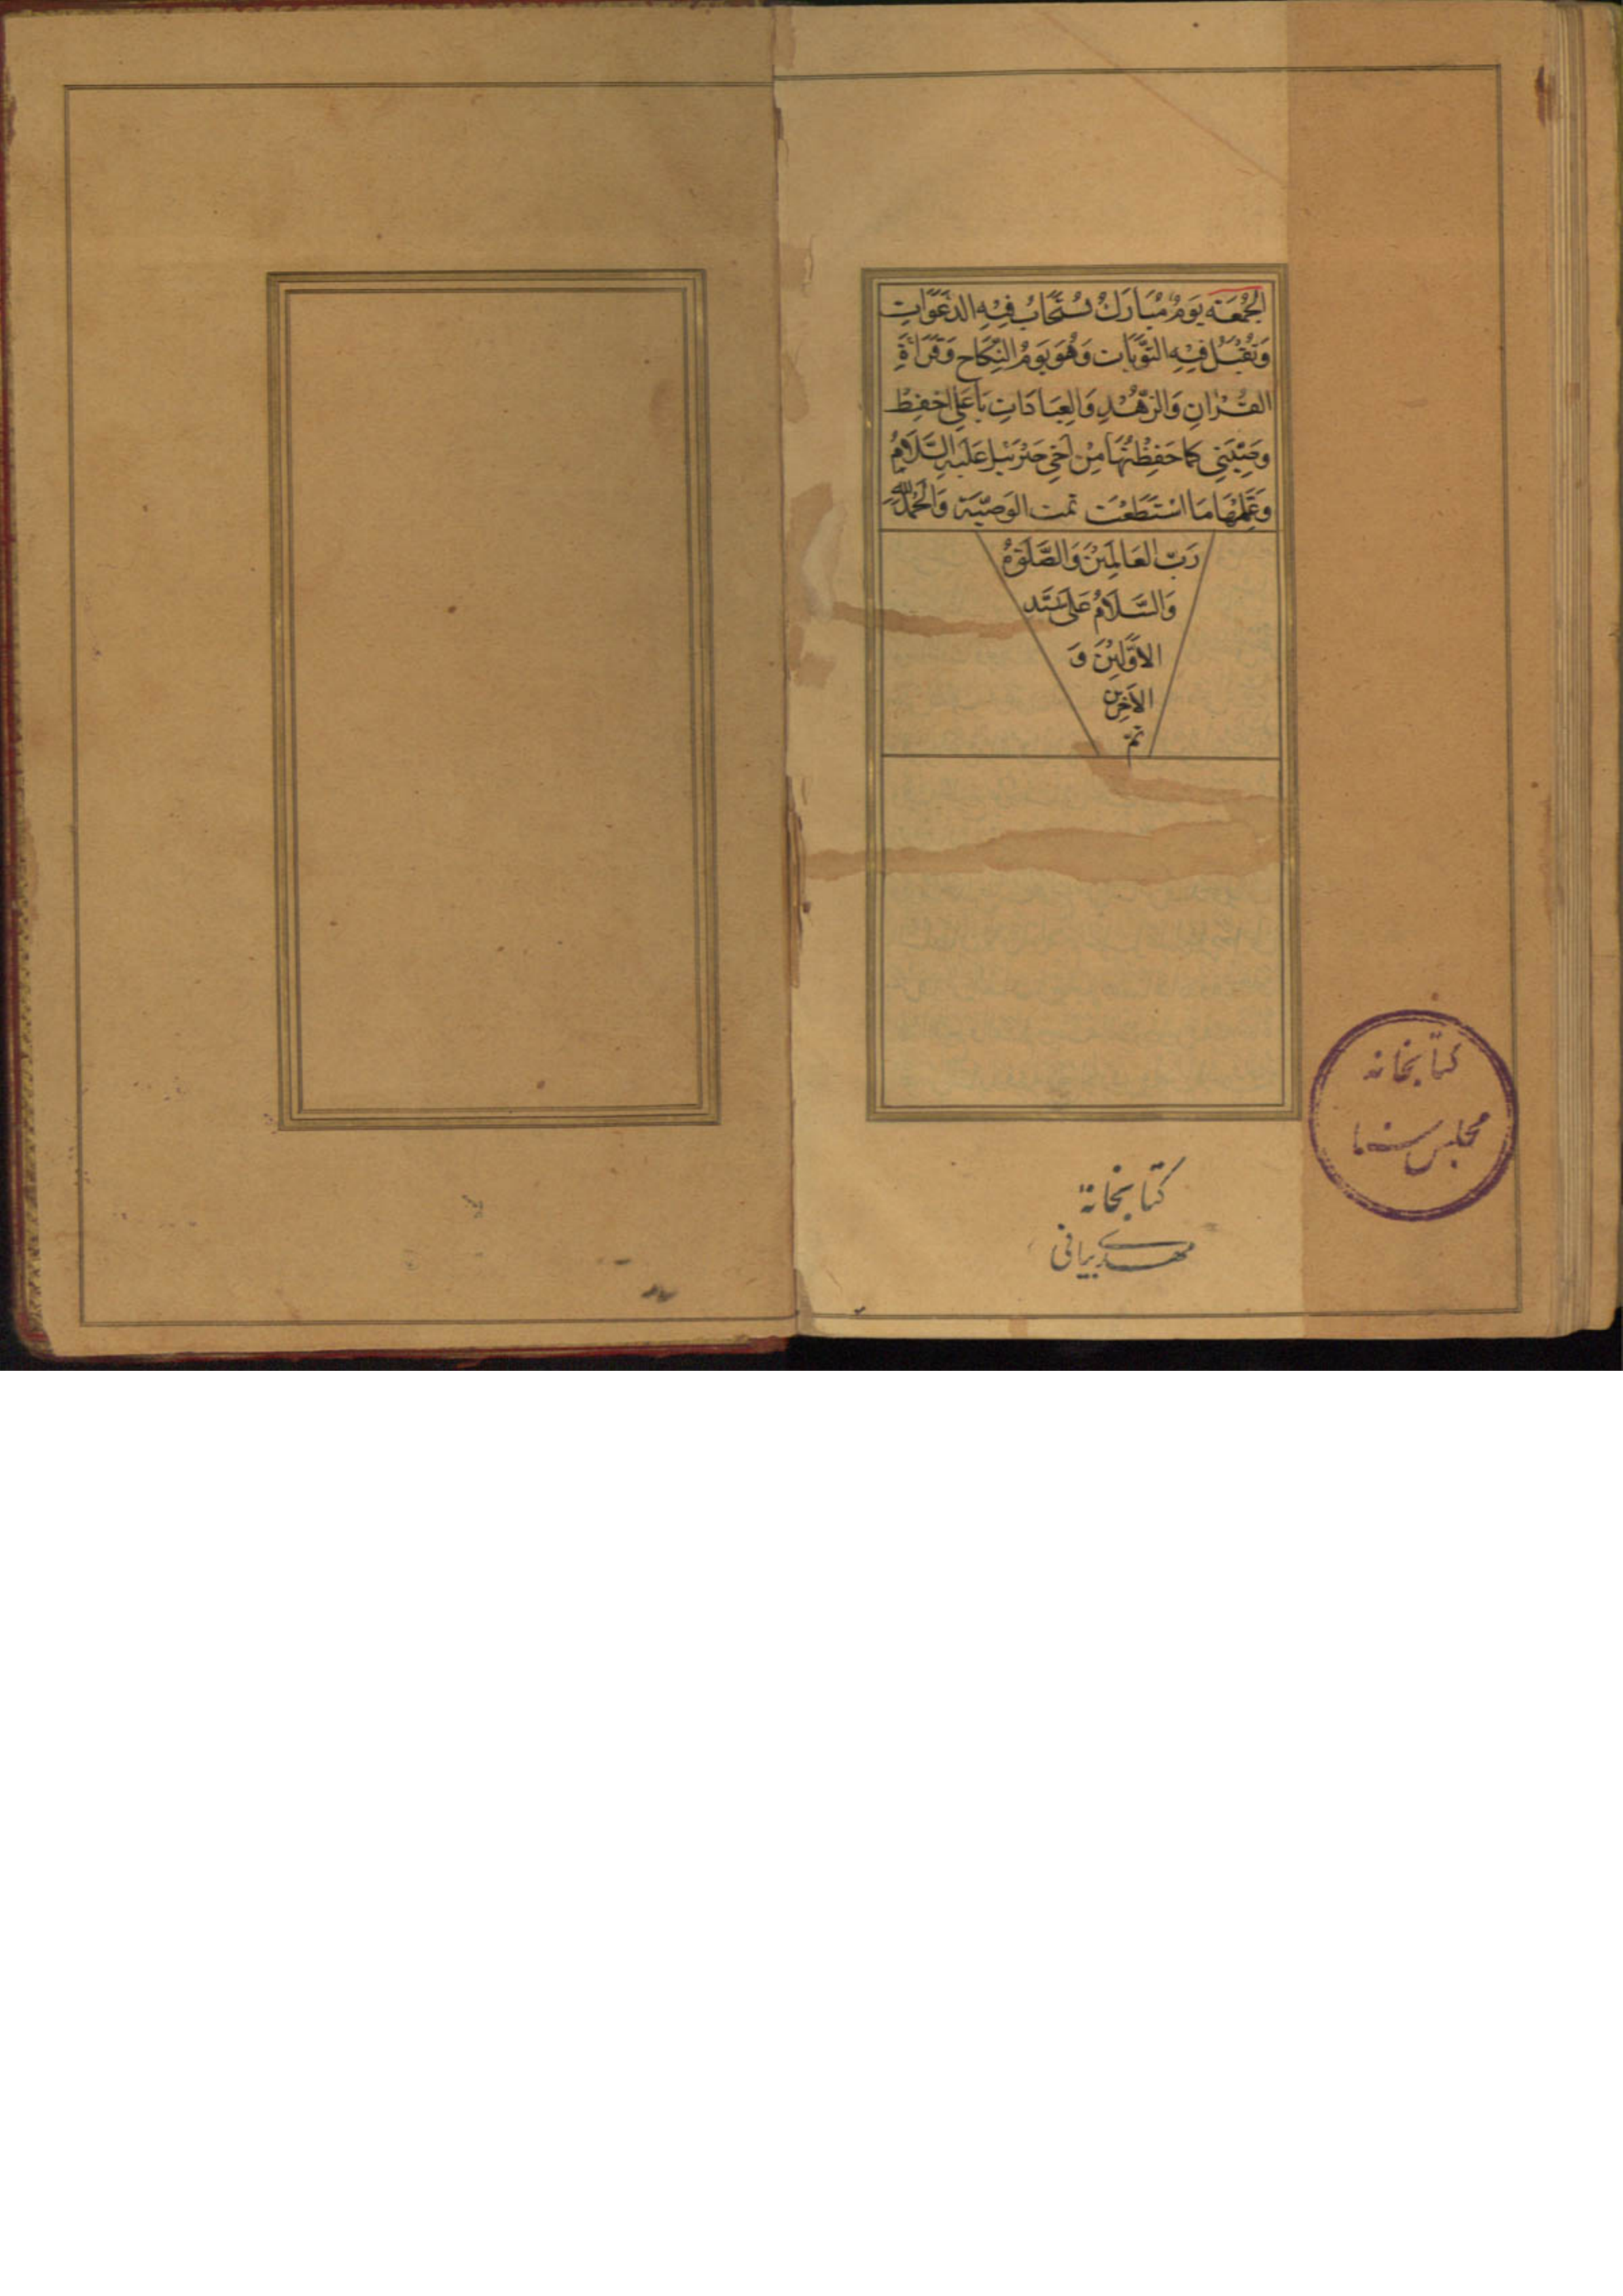 الجُمُعَة يَومٌ مُبَارَكٌ تُسْتَجَابُ فِيْهِ الدَّعَوَاتِ
وَتُقْبَلُ فِيْهِ التَّوْبَات وَهُوَ يَومُ النِّكَاحِ وَقَرَاءَةِ
القُرْانِ وَالزُّهْدِ وَالعِبَادَاتِ يَا عَلِي احْفِظْ
وَصِيَّتِي كَمَا حَفِظْتُهَا مِنْ اَخِي جَبْرَئيل عَلَيْهِ السَّلَامُ
وَعَلِّمْهَا مَا اسْتَطَعْتَ تمت الوَصِيَّة وَالحَمْدُ لِلّهِ
رَبِّ العَالَمِيْنَ وَالصَّلَوةُ
وَالسَّلَامُ عَلَى سَيِّد
الاَوَّلِيْنَ وَ
الاٰخِرِين
تمّ
کتابخانه
مجلس سنا
کتابخانهٔ
مهدی بیانی